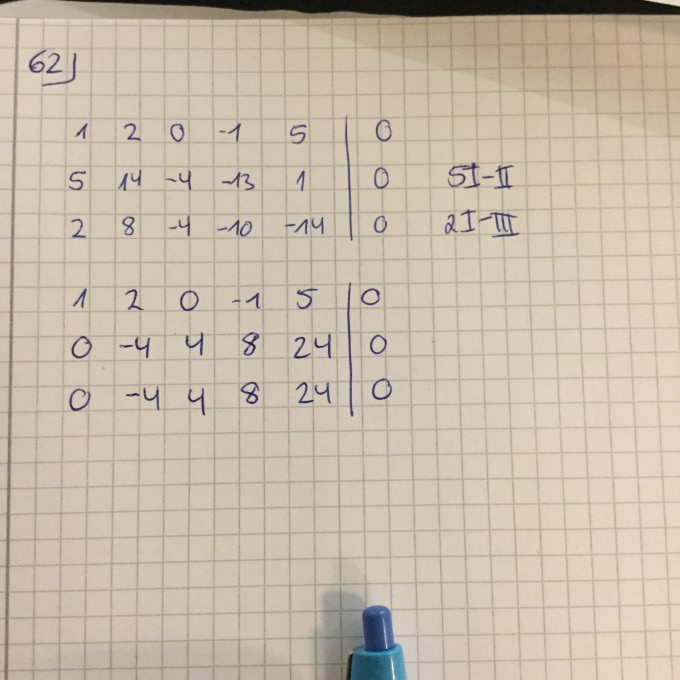 62)
1 2 0 -1 5 | 0
5 14 -4 -13 1 | 0 5I-II
2 8 -4 -10 -14 | 0 2I-III
1 2 0 -1 5 | 0
0 -4 4 8 24 | 0
0 -4 4 8 24 | 0